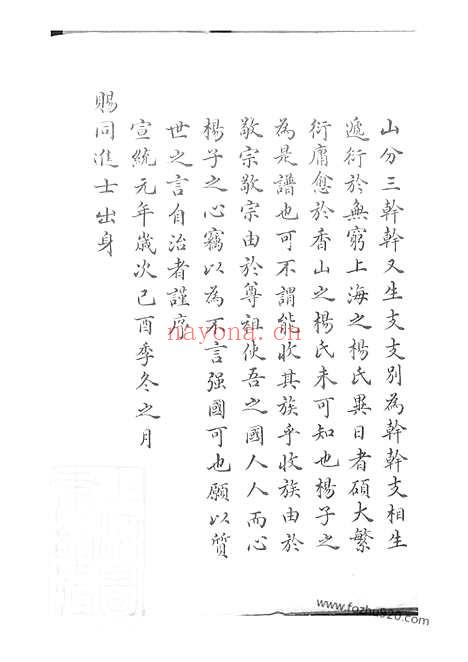 山分三幹幹又生支支別為幹幹支相生
遞衍於無窮上海之楊氏異日者碩大繁
衍庸愈於香山之楊氏未可知也楊子之
為是譜也可不謂能收其族乎收族由於
敬宗敬宗由於尊祖使吾之國人人而心
楊子之心竊以為不言强國可也願以質
世之言自治者謹序
宣統元年歲次己酉季冬之月
賜同進士出身
nayona.cn
www.fozhu920.com